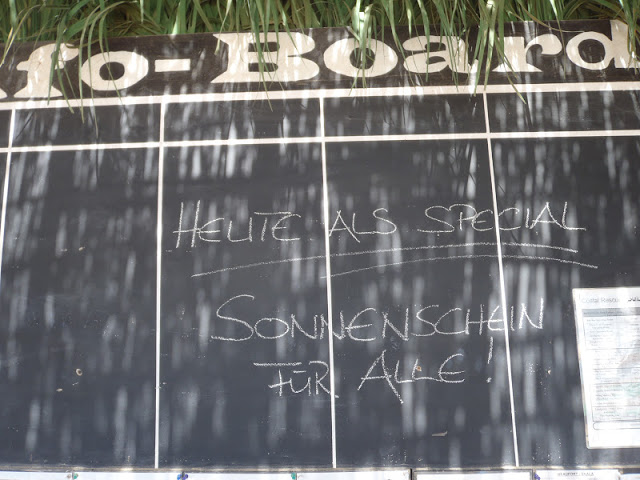 fo-Board
HEUTE ALS SPECIAL
SONNENSCHEIN
FÜR ALLE!